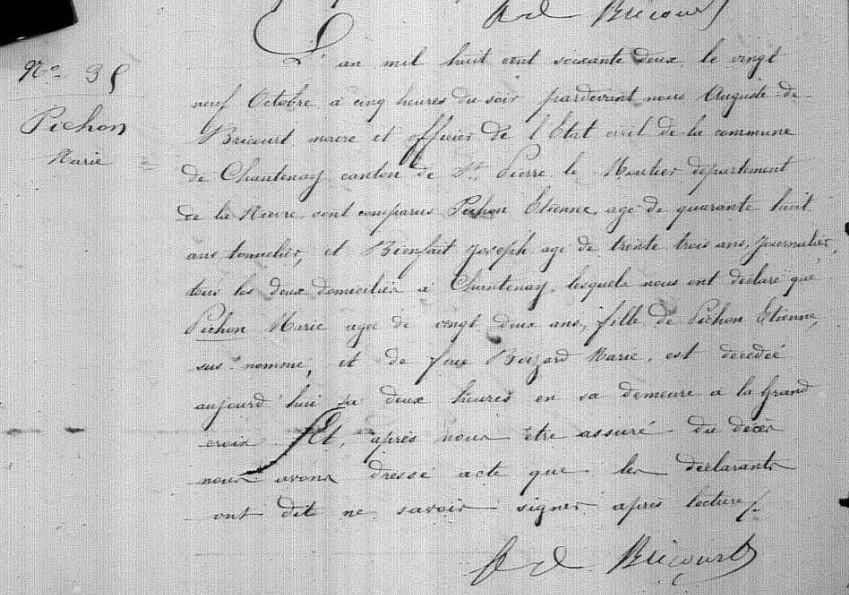 A de Bricourt
L'an mil huit cent soixante deux, le vingt
No 35
neuf Octobre à cinq heures du soir pardevant nous Auguste de
Pichon
Bricourt, maire et officier de l'Etat civil de la commune
Marie
de Chantenay canton de St Pierre le Moutier département
de la Nievre sont comparus Pichon Etienne, agé de quarante huit
ans tonnelier, et Bienfait Joseph agé de trente trois ans, journalier,
tous les deux domiciliés à Chantenay, lesquels nous ont déclaré que
Pichon Marie agée de vingt deux ans, fille de Pichon Etienne,
sus nommé, et de feue Marie, est décédée
aujourd'hui à deux heures en sa demeure à la Grand
croix. Et, après nous être assuré du décès
nous avons dressé acte que les déclarants
ont dit ne savoir signer après lecture /.
A de Bricourt